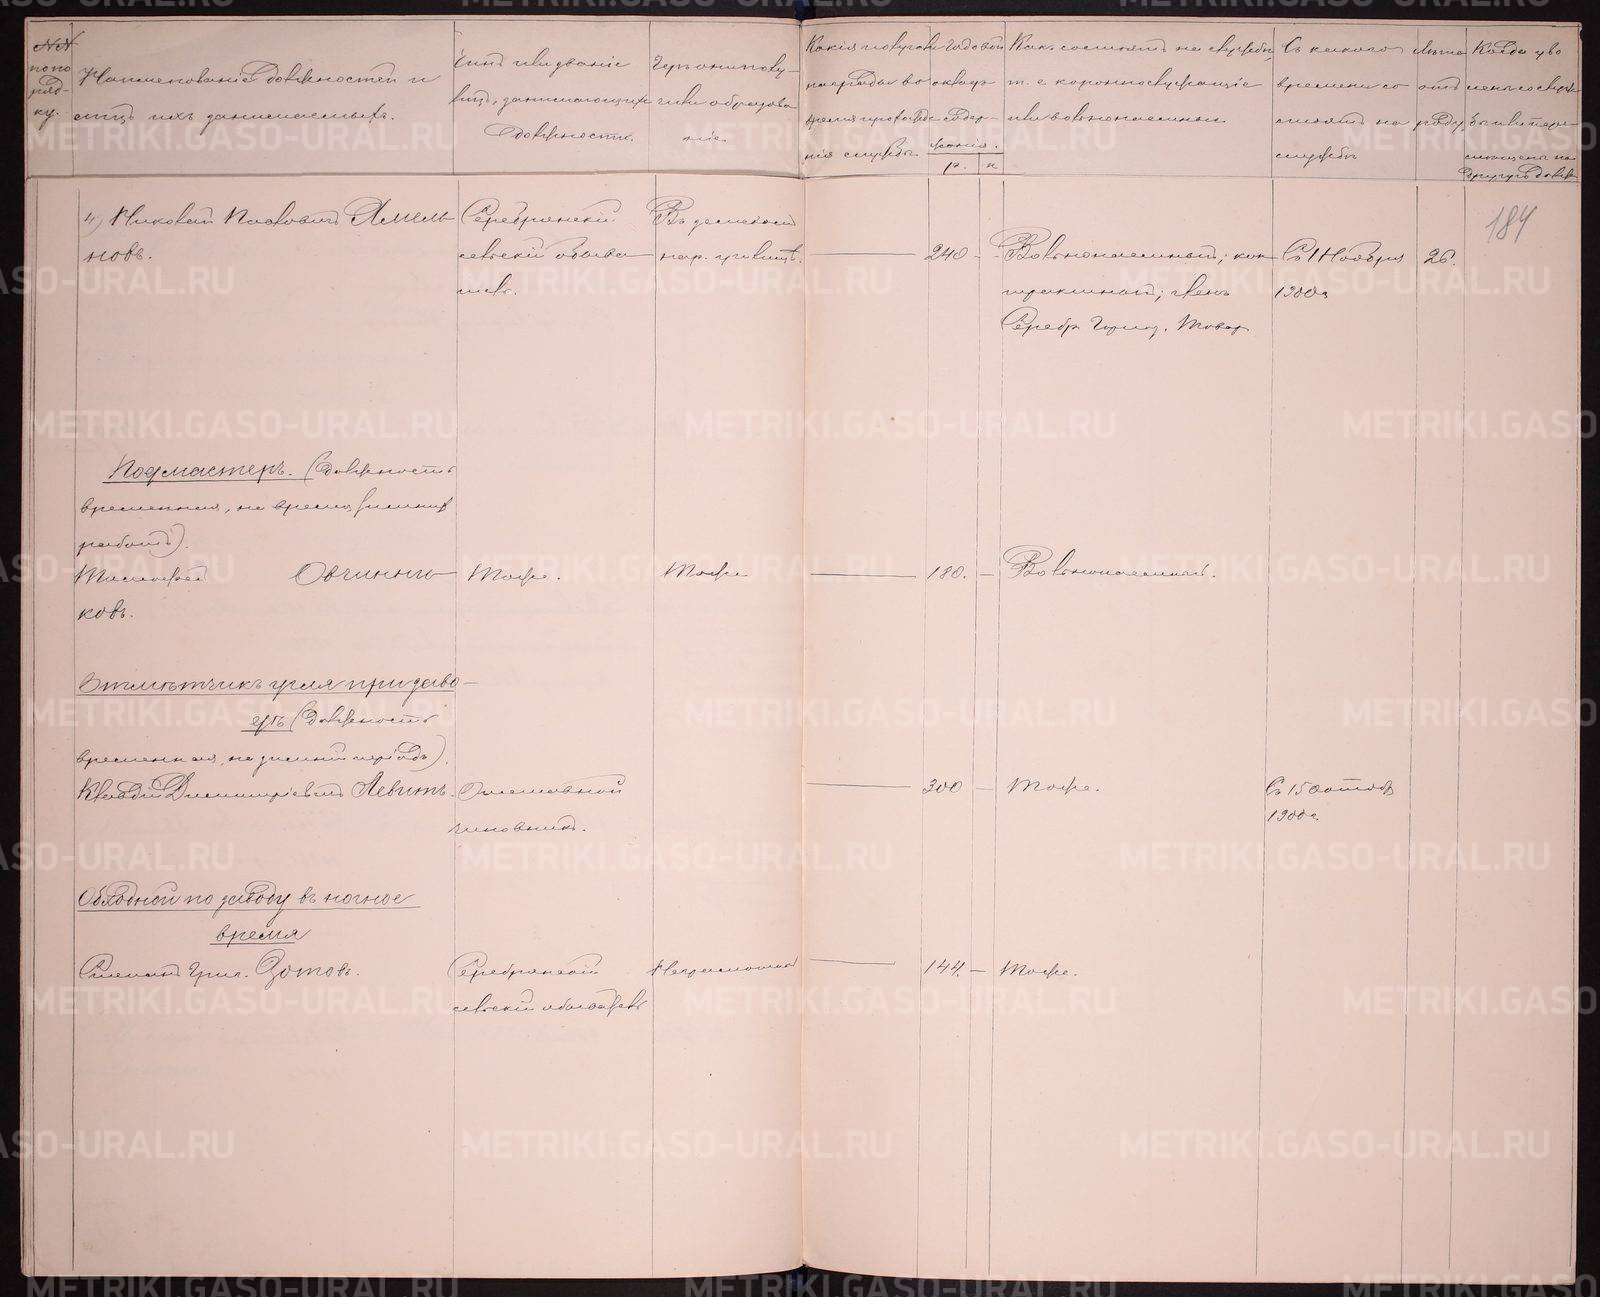 №№ по поряд-ку.
Наименованіе должностей и
лицъ ихъ занимаемыхъ.
Чинъ или званіе
лицъ, занимающихъ
должность.
Гдѣ они полу-
чили образова
ніе
Какія получали
награды во
время прохожде
нія службы
Годовой
окладъ
содер-
жанія.
р. к
Какъ состоятъ на службѣ,
т. е. короннослужащіе
или вольнонаемные
Съ какого
времени со
стоятъ на
службѣ
Лѣта
отъ
роду
Когда уво
лены со служ
бы или пере-
мѣщены на
другую долж
184
4) Николай Павловичъ Амель-
новъ.
Серебрянскій
сельскій обыва
тель.
Въ земской
нар. училищѣ.
240 -
Вольнонаемный; кон
трактной; членъ
Серебр. Горноз. Товар
Съ 1 Ноября
1900 г.
26.
Подмастеръ. (должность
временная, на время зимнихъ
работъ).
Тимофей Овчинни-
ковъ.
Тоже.
Тоже
180. -
Вольнонаемный.
Отмѣтчикъ угля при заво-
дѣ (должность
временная, на зимній періодъ).
Клавдій Димитріевичъ Левитъ.
Отставной
чиновникъ.
300 -
Тоже.
Съ 15 октяб
1900 г.
Обходной по заводу въ ночное
время
Степанъ Григ. Зотовъ.
Серебрянскій
сельскій обыватель
Неграмотный
144 -
Тоже.
METRIKI.GASO-URAL.RU